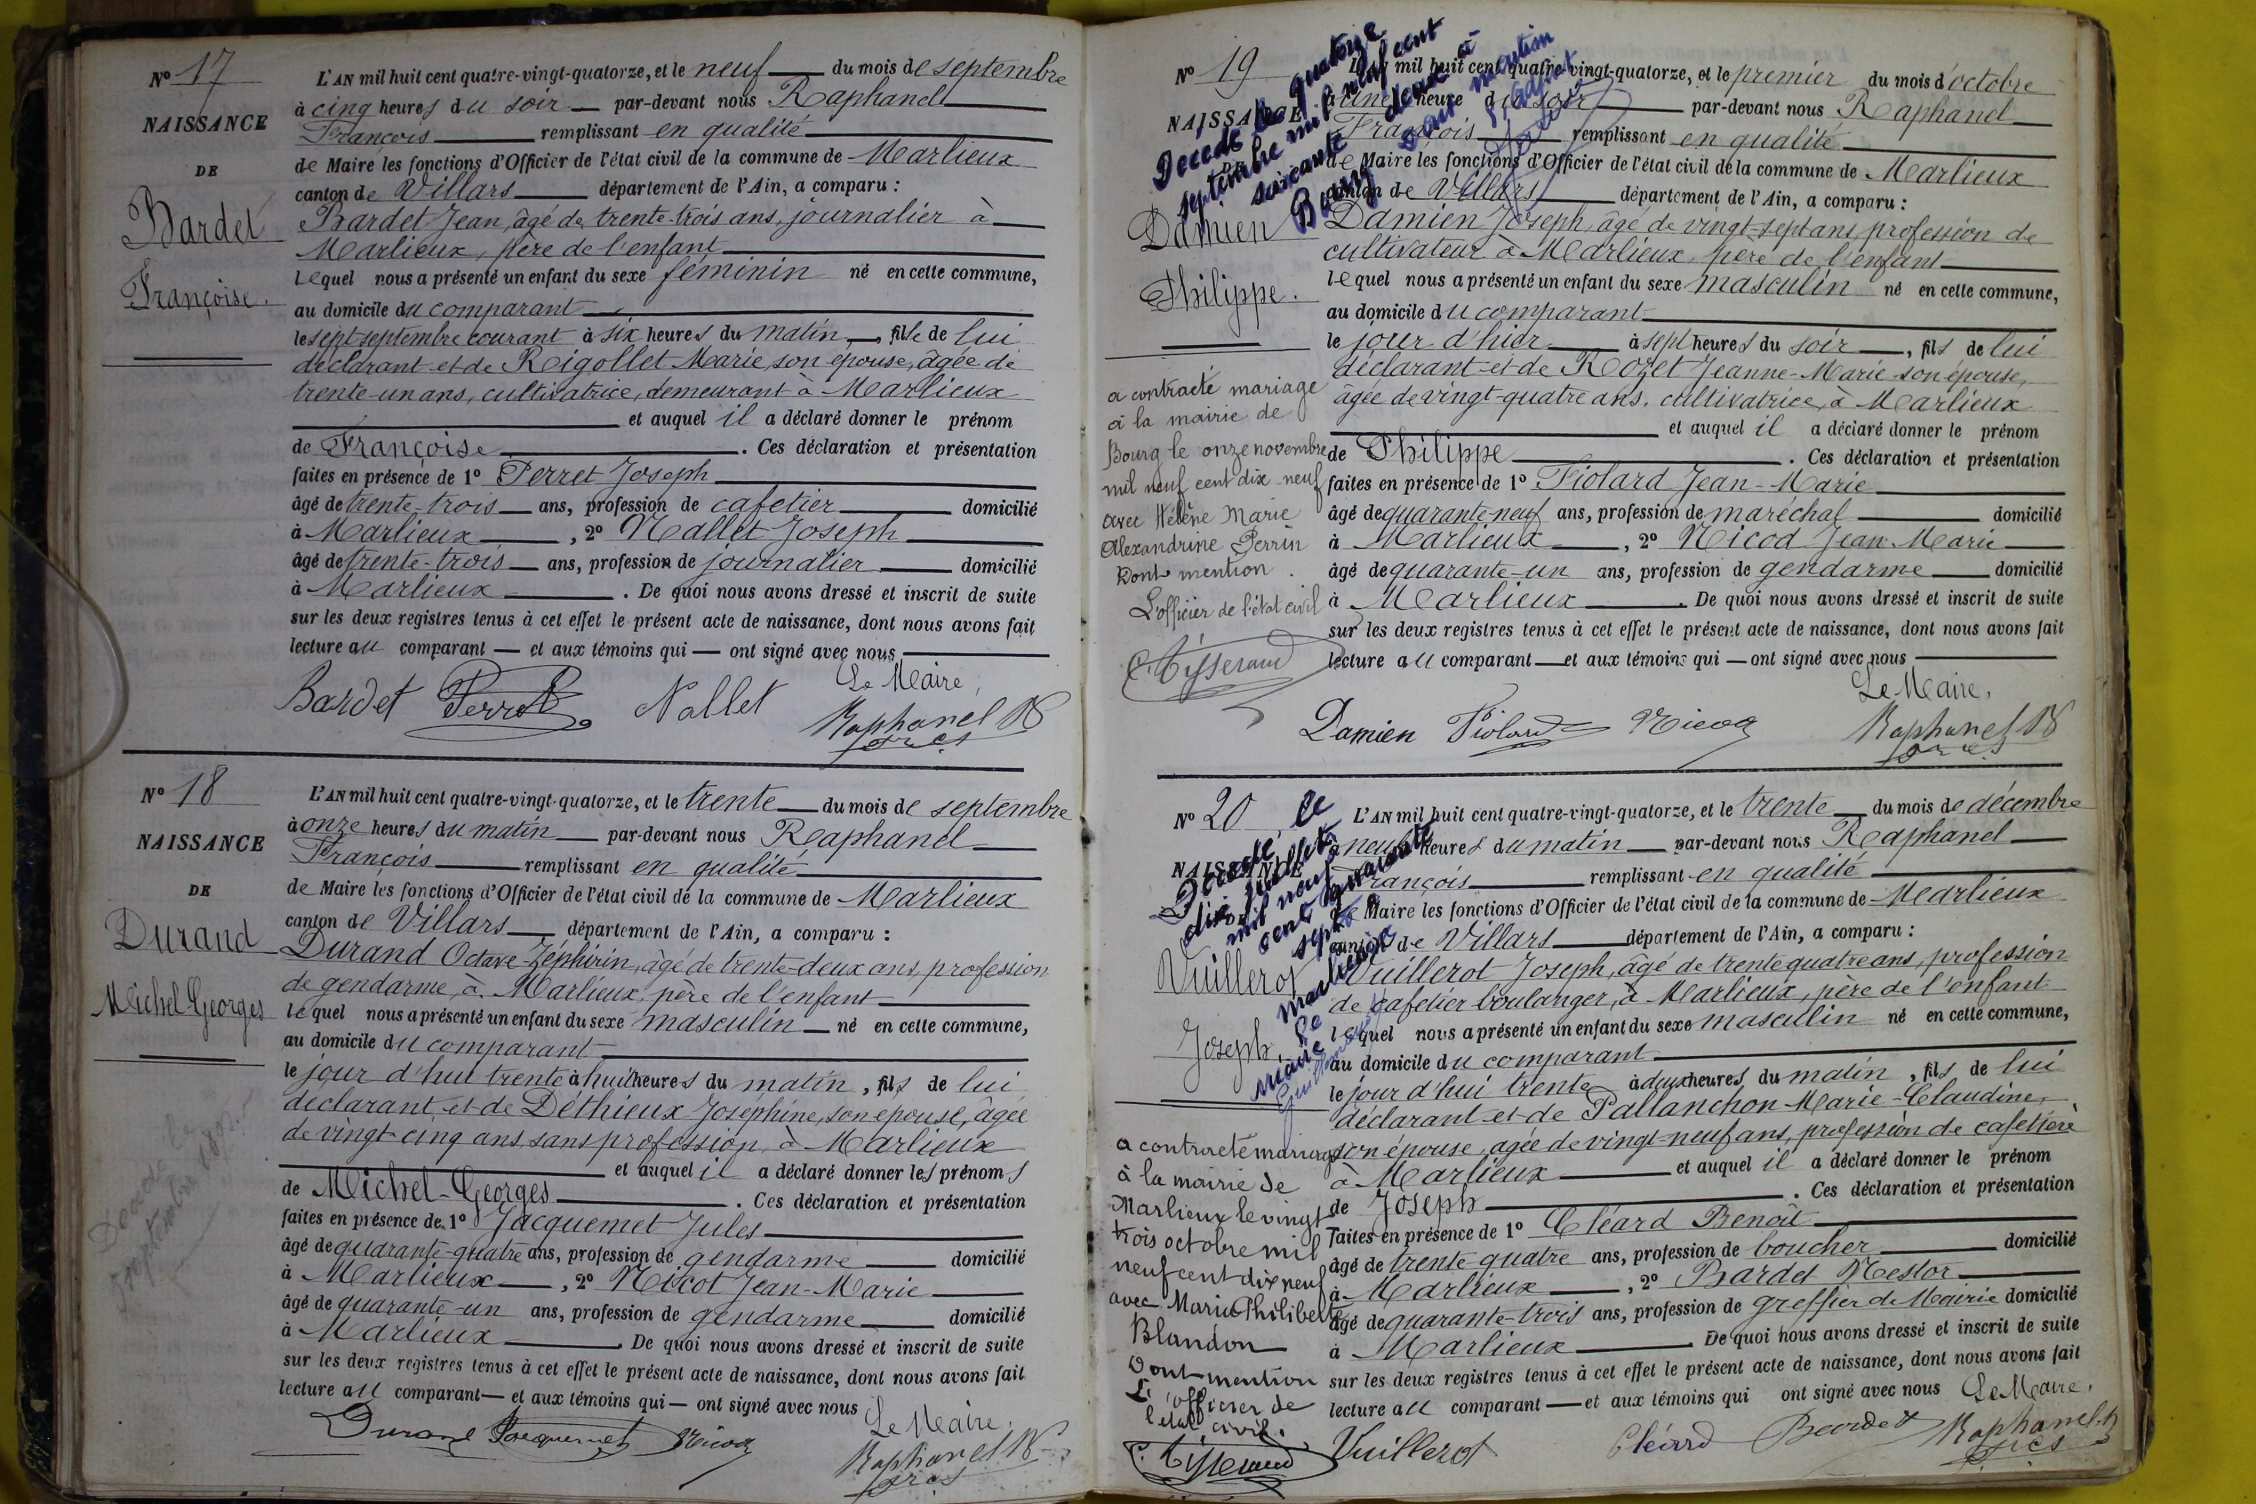 N° 17
NAISSANCE
DE
Bardet
Françoise.
L'AN mil huit cent quatre-vingt-quatorze, et le neuf du mois de septembre
à cinq heures du soir par-devant nous Raphanel
François remplissant en qualité
de Maire les fonctions d'Officier de l'état civil de la commune de Marlieux
canton de Villars département de l'Ain, a comparu :
Bardet Jean, âgé de trente-trois ans, journalier à
Marlieux, père de l'enfant
lequel nous a présenté un enfant du sexe féminin né en cette commune,
au domicile du comparant
le sept septembre courant à six heures du matin, fille de lui
déclarant et de Rigollet Marie, son épouse, âgée de
trente-un ans, cultivatrice, demeurant à Marlieux
et auquel il a déclaré donner le prénom
de Françoise. Ces déclaration et présentation
faites en présence de 1° Perret Joseph
âgé de trente-trois ans, profession de cafetier domicilié
à Marlieux, 2° Nallet Joseph
âgé de trente-trois ans, profession de journalier domicilié
à Marlieux. De quoi nous avons dressé et inscrit de suite
sur les deux registres tenus à cet effet le présent acte de naissance, dont nous avons fait
lecture au comparant et aux témoins qui ont signé avec nous
Le Maire,
Bardet Perret Nallet Raphanel
N° 18
NAISSANCE
DE
Durand
Michel-Georges
Décédé le
septembre 1895
L'AN mil huit cent quatre-vingt-quatorze, et le trente du mois de septembre
à onze heures du matin par-devant nous Raphanel
François remplissant en qualité
de Maire les fonctions d'Officier de l'état civil de la commune de Marlieux
canton de Villars département de l'Ain, a comparu :
Durand Octave-Zéphirin, âgé de trente-deux ans, profession
de gendarme, à Marlieux, père de l'enfant
lequel nous a présenté un enfant du sexe masculin né en cette commune,
au domicile du comparant
le jour d'hui trente à huit heures du matin, fils de lui
déclarant, et de Déthieux Joséphine, son épouse, âgée
de vingt-cinq ans, sans profession, à Marlieux
et auquel il a déclaré donner les prénoms
de Michel-Georges. Ces déclaration et présentation
faites en présence de 1° Jacquemet Jules
âgé de quarante-quatre ans, profession de gendarme domicilié
à Marlieux, 2° Nicot Jean-Marie
âgé de quarante-un ans, profession de gendarme domicilié
à Marlieux. De quoi nous avons dressé et inscrit de suite
sur les deux registres tenus à cet effet le présent acte de naissance, dont nous avons fait
lecture au comparant et aux témoins qui ont signé avec nous
Le Maire.
Durand Jacquemet Nicod Raphanel
N° 19
NAISSANCE
Décédé le quatorze
septembre mil neuf cent
soixante deux à
Bourg dont mention
Damien
Philippe.
a contracté mariage
à la mairie de
Bourg le onze novembre
mil neuf cent dix-neuf
avec Hélène Marie
Alexandrine Perrin
Dont mention.
L'officier de l'état civil
C. Tisserand
L'AN mil huit cent quatre-vingt-quatorze, et le premier du mois d'octobre
à cinq heure du soir par-devant nous Raphanel
François remplissant en qualité
de Maire les fonctions d'Officier de l'état civil de la commune de Marlieux
canton de Villars département de l'Ain, a comparu :
Damien Joseph, âgé de vingt-sept ans, profession de
cultivateur à Marlieux, père de l'enfant
lequel nous a présenté un enfant du sexe masculin né en cette commune,
au domicile du comparant
le jour d'hier à sept heures du soir, fils de lui
déclarant et de Rozet Jeanne-Marie son épouse,
âgée de vingt-quatre ans, cultivatrice, à Marlieux
et auquel il a déclaré donner le prénom
de Philippe. Ces déclaration et présentation
faites en présence de 1° Piolard Jean-Marie
âgé de quarante-neuf ans, profession de maréchal domicilié
à Marlieux, 2° Nicod Jean-Marie
âgé de quarante-un ans, profession de gendarme domicilié
à Marlieux. De quoi nous avons dressé et inscrit de suite
sur les deux registres tenus à cet effet le présent acte de naissance, dont nous avons fait
lecture au comparant et aux témoins qui ont signé avec nous
Le Maire,
Damien Piolard Nicod Raphanel
N° 20
NAISSANCE
Décédé le
dix juillet
mil neuf
cent quarante
sept à
Marlieux
Le
maire
Vuillerot
Joseph.
a contracté mariage
à la mairie de
Marlieux le vingt
trois octobre mil
neuf cent dix neuf
avec Marie Philiberte
Blandon
Dont mention
L'officier de
l'état civil.
C. Tisserand
L'AN mil huit cent quatre-vingt-quatorze, et le trente du mois de décembre
à neuf heures du matin par-devant nous Raphanel
François remplissant en qualité
de Maire les fonctions d'Officier de l'état civil de la commune de Marlieux
canton de Villars département de l'Ain, a comparu :
Vuillerot Joseph, âgé de trente quatre ans, profession
de cafetier boulanger, à Marlieux, père de l'enfant
lequel nous a présenté un enfant du sexe masculin né en cette commune,
au domicile du comparant
le jour d'hui trente à deux heures du matin, fils de lui
déclarant et de Pallanchon Marie-Claudine,
son épouse, agée de vingt-neuf ans, profession de cafetière
à Marlieux et auquel il a déclaré donner le prénom
de Joseph. Ces déclaration et présentation
faites en présence de 1° Cléard Benoît
âgé de trente quatre ans, profession de boucher domicilié
à Marlieux, 2° Bardet Nestor
âgé de quarante-trois ans, profession de greffier de Mairie domicilié
à Marlieux De quoi nous avons dressé et inscrit de suite
sur les deux registres tenus à cet effet le présent acte de naissance, dont nous avons fait
lecture au comparant et aux témoins qui ont signé avec nous Le Maire,
Vuillerot Cléard Bardet Raphanel